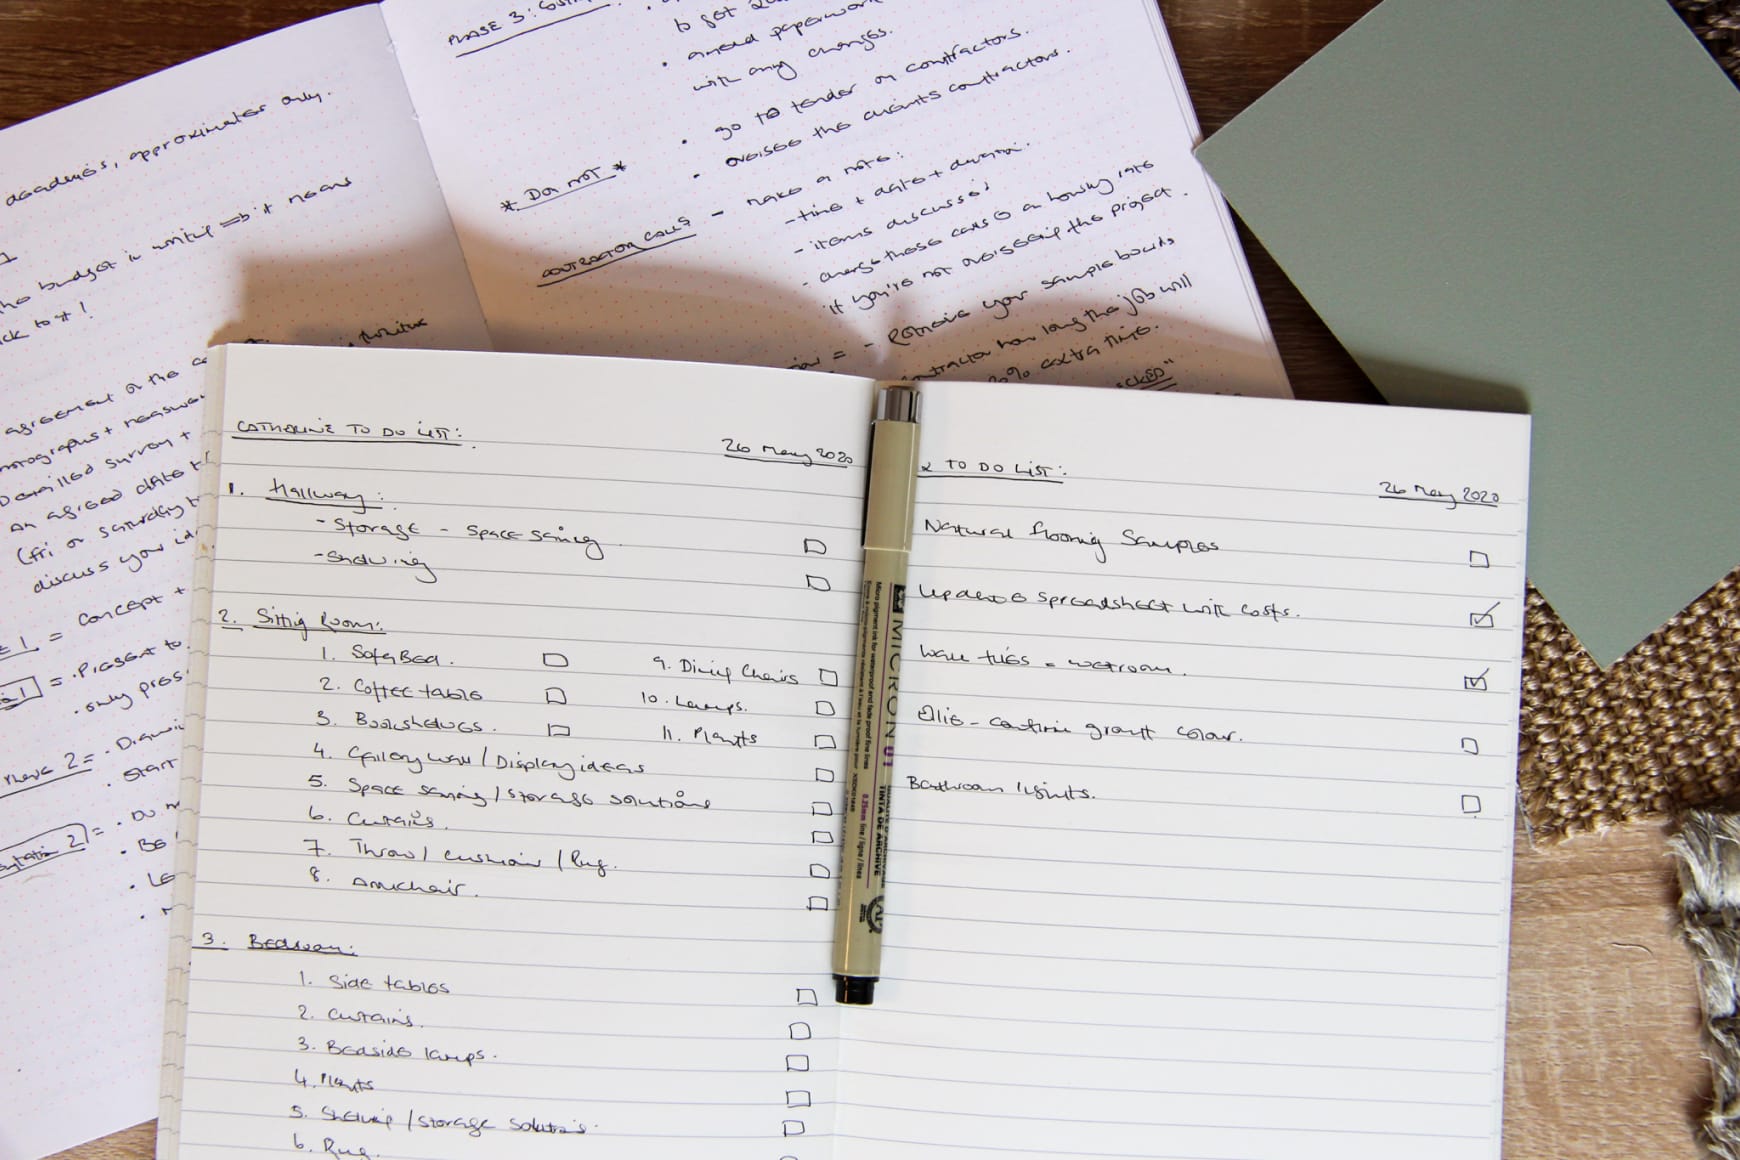 deadlines, approximates only.
the budget in writing => it means
stick to it!
agreement on the
photographs + measure
Detailed survey +
An agreed date t
(Fri or Saturday t
discuss your id
= Concept +
= . Present to
. only pres
Phase 2 = . Drawi
. Start
. Do n
. BE
. LE
PHASE 3:
to get
. amend paperwork
with any changes.
. go to tender on contractors.
. oversee the clients contractors.
* DO NOT *
CONTRACTOR CALLS - make a note:
- time + date + duration.
- items discussed
- charge these calls @ a hourly rate
if you're not overseeing the project.
= - Remove your sample boards
contractor how long the job will
% extra time.
CATHERINE TO DO LIST:
26 May 2020
1. Hallway:
- Storage - space saving
- Shelving
2. Sitting Room:
1. Sofa Bed.
2. Coffee table
3. Bookshelves.
4. Gallery wall / Display ideas
5. Space saving / storage solutions
6. Curtains.
7. Throw / cushion / Rug.
8. Armchair.
9. Dining Chairs
10. Lamps.
11. Plants
3. Bedroom:
1. Side tables
2. Curtains.
3. Bedside lamps.
4. Plants
5. Shelving / storage solutions.
6. Rug.
TO DO LIST:
26 May 2020
Natural flooring Samples
Update spreadsheet with costs.
Wall tiles - wetroom.
Ellie - confirm grout colour.
Bathroom lights.
MICRON 01
TINTA DE ARCHIVE
0.25mm line / ligne / línea